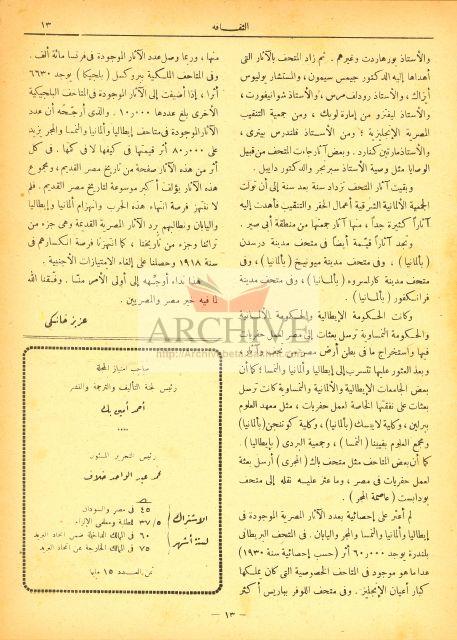 الثقافة
١٣
والأستاذ بورهاردت وغيرهم . ثم زاد المتحف بالآثار التى
أهداها إليه الدكتور جيمس سيمون، والمستشار يوليوس
أيزاك ، والأستاذ رودلف مرس ، والأستاذ شوانيفورت ،
والأستاذ ليفزو من إمارة لوبك ، ومن جمعية التنقيب
المصرية الإنجليزية ؛ ومن الأستاذ فلندرس بيترى ،
والأستاذ مارتين كنارد . وبعض آثار جاءت المتحف من قبيل
الوصايا مثل وصية الأستاذ سبرنجر والدكتور داييل .
وبقيت آثار المتحف تزداد سنة بعد سنة إلى أن تولت
الجمعية الألمانية الشرقية أعمال الحفر والتنقيب فأهدت إليه
آثاراً كثيرة جداً ، منها آثار جمعتها من منطقة أبى صير .
وتجد آثاراً قيّمة أيضاً فى متحف مدينة درسدن
(بألمانيا) ، وفى متحف مدينة ميونيخ (بألمانيا) ، وفى
متحف مدينة كارلسروه (بألمانيا) ، وفى متحف مدينة
فرانكفور (بألمانيا) .
وكانت الحكومة الإيطالية والحكومة الألمانية
والحكومة النمساوية ترسل بعثات إلى مصر لعمل حفريات
فيها واستخراج ما فى بطن أرض مصر من
وبعد العثور عليها تتسرب إلى إيطاليا وألمانيا والنمسا ؛ كما أن
بعض الجامعات الإيطالية والألمانية والنمساوية كانت ترسل
بعثات على نفقتها الخاصة لعمل حفريات ، مثل معهد العلوم
ببرلين ، وكلية لايبسك (بألمانيا) ، وكلية كوتنجن (بألمانيا)
ومجمع العلوم بڤيينا (النمسا) ، وجمعية البردى (بإيطاليا) .
كما أن بعض المتاحف مثل متحف باك (المجرى) أرسل بعثة
لعمل حفريات فى مصر ، وما عثر عليه نقله إلى متحف
بودابست (عاصمة المجر) .
لم أعثر على إحصائية بعدد الآثار المصرية الموجودة فى
إيطاليا وألمانيا والنمسا والمجر واليابان . ففى المتحف البريطانى
بلندرة يوجد ٦٠٫٠٠٠ أثر (حسب إحصائية سنة ١٩٣٠)
عدا ما هو موجود فى المتاحف الخصوصية التى كان يملكها
كبار أعيان الإنجليز . وفى متحف اللوفر بباريس أكثر
منها ، وربما وصل عدد الآثار الموجودة فى فرنسا مائة ألف .
وفى المتاحف الملكية ببروكسل (بلجيكا) يوجد ٦٦٣٠
أثراً ، إذا أضيفت إلى الآثار الموجودة فى المتاحف البلجيكية
الأخرى بلغ عددها ١٠٫٠٠٠ . والذى أرجّحه أن عدد
الآثار الموجودة فى متاحف إيطاليا وألمانيا والنمسا والمجر يزيد
على ٨٠٫٠٠٠ أثر قيمتها فى كيفها لا فى كمها . فى كل
أثر من هذه الآثار صفحة من تاريخ مصر القديم ، ومجموع
هذه الآثار يؤلف أكبر موسوعة لتاريخ مصر القديم . فلم
لا ننتهز فرصة انتهاء هذه الحرب وانهزام ألمانيا وإيطاليا
واليابان ونطالبهم برد الآثار المصرية القديمة وهى جزء من
تراثنا وجزء من تاريخنا ، كما انتهزنا فرصة انكسارهم فى
سنة ١٩١٨ وحصلنا على إلغاء الامتيازات الأجنبية .
هذا نداء أوجّهه إلى أولى الأمر منا . وفقنا الله
لما فيه خير مصر والمصريين .
عزيز خانكى
ARCHIVE
صاحب امتياز المجلة
رئيس لجنة التأليف والترجمة والنشر
أحمد أمين بك
••••
رئيس التحرير المسئول
محمد عبد الواحد خلاف
الاشتراك
لستة أشهر
٤٥ فى مصر والسودان
٣٧/٥ للطلبة ومعلمى الإلزام
٦٠ فى الممالك الداخلة ضمن اتحاد البريد
٧٥ فى الممالك الخارجة عن اتحاد البريد
ثمن العدد ١٥ مليما
— ١٣ —